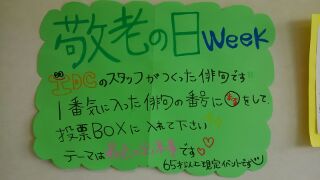 敬老の日Week
DCのスタッフがつくった俳句です
1番気に入った俳句の番号に○をして、
投票BOXに入れて下さい
テーマは です
65才以上限定イベントです